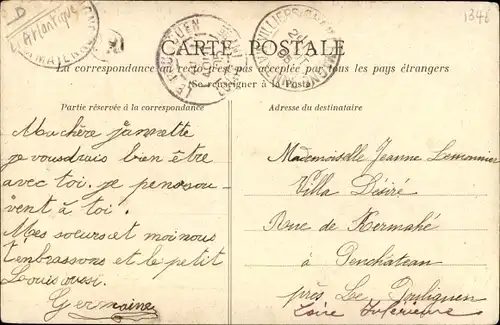 D
L'Atlantique
1346
CARTE POSTALE
La correspondance au recto n'est pas acceptée par tous les pays étrangers
(Se renseigner à la Poste)
Partie réservée à la correspondance
Adresse du destinataire
Ma chère jannette
je voudrais bien être
avec toi. je pense sou-
vent à toi.
Mes soeurs et moi nous
t'embrassons et le petit
Louis ausi.
Germaine
Mademoiselle Jeanne Lemonnier
Villa Désiré
Rue de Kermahé
à Penchateau
près Le Pouliguen
Loire Inférieure